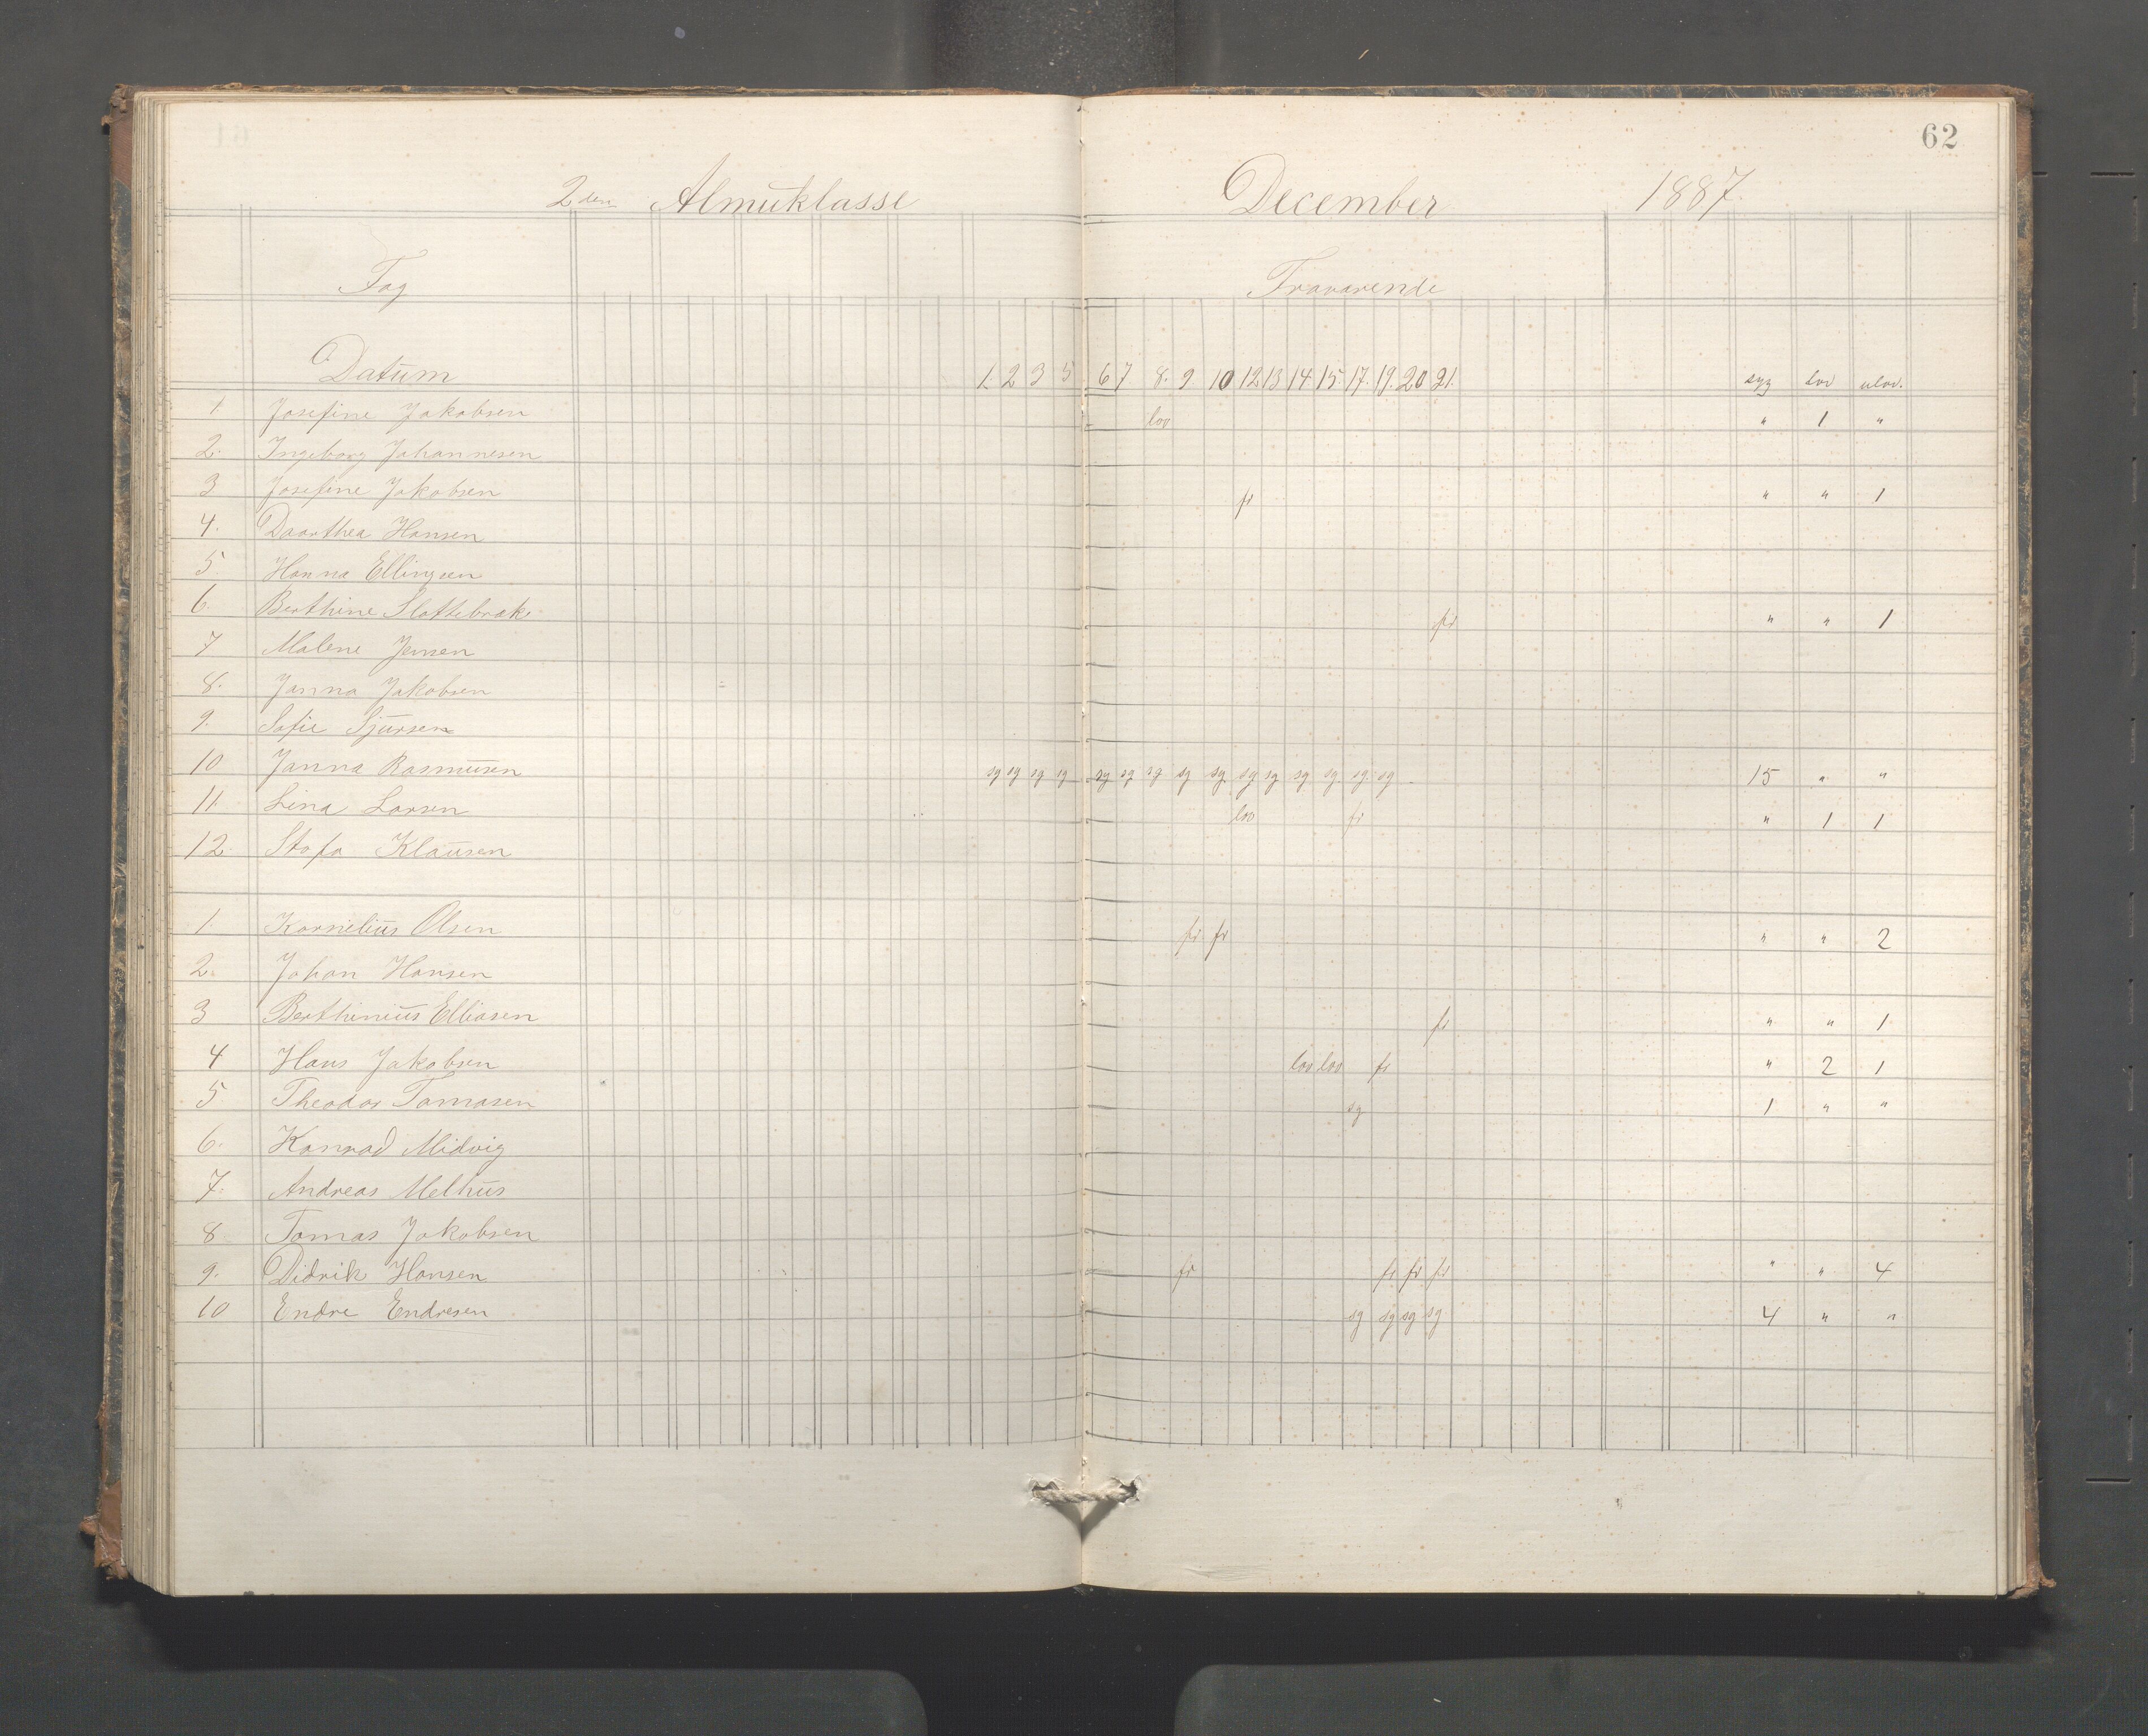 62
2den Almuklasse December 1887
Fag Fraværende
Datum 1. 2 3 5 6 7 8. 9 10 12 13 14 15. 17. 19. 20 21. syg lov ulov.
1. Josefine Jakobsen lov " 1 "
2. Ingeborg Johannesen
3 Josefine Jakobsen fr " " 1
4. Dorthea Hansen
5 Hanna Ellingsen
6. Berthine Slottebrak fr " " 1
7 Malene Jensen
8. Janna Jakobsen
9. Sofie Sjursen
10 Janna Rasmusen sg sg sg sg sg sg sg sg sg sg sg sg sg sg. sg 15 " "
11. Lina Larsen lov fr " 1 1
12. Klausen
1. Kornelius Olsen fr fr " " 2
2. Johan Hansen
3 Berthinius Elliasen fr " " 1
4 Hans Jakobsen lov lov fr " 2 1
5 Theodor Tomasen sg 1 " "
6. Konrad Midvig
7. Andreas Melhus
8. Tomas Jakobsen
9. Didrik Hansen fr fr fr fr " " 4
10 Endre Endresen sg sg sg sg 4 " "